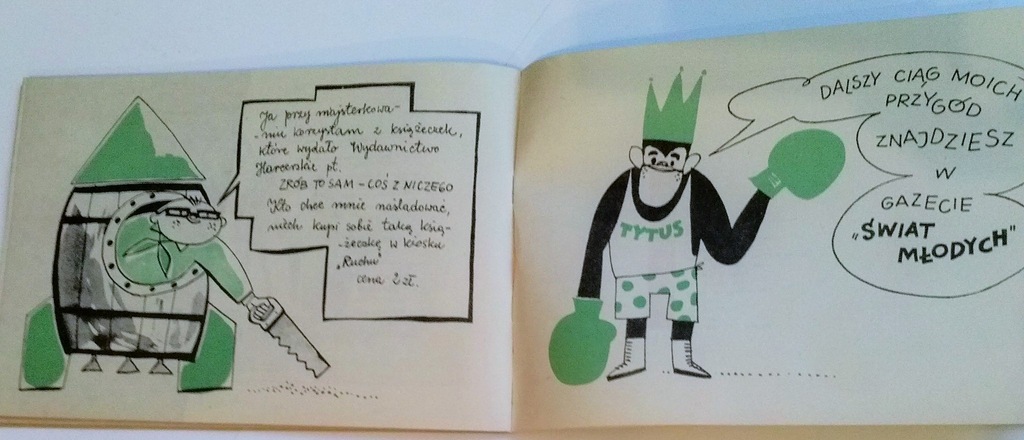 Ja przy majsterkowa-
-niu korzystam z książeczek,
które wydało Wydawnictwo
Harcerskie pt.
ZRÓB TO SAM - COŚ Z NICZEGO
Kto chce mnie naśladować,
niech kupi sobie taką ksią-
-żeczkę w kiosku
„Ruchu"
cena 2 zł.
TYTUS
DALSZY CIĄG MOICH
PRZYGÓD
ZNAJDZIESZ
W
GAZECIE
„ŚWIAT
MŁODYCH"